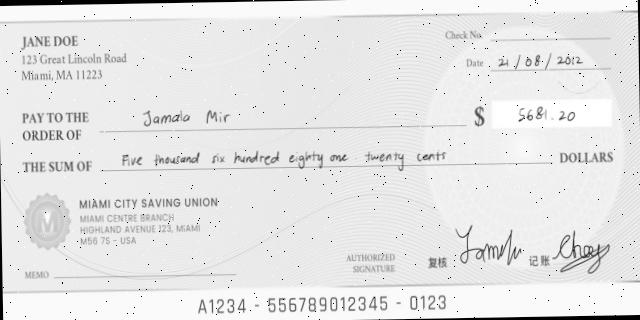 JANE DOE
123 Great Lincoln Road
Miami, MA 11223
Check No.
Date 21/08/2012
PAY TO THE
ORDER OF Jamala Mir
$ 5681.20
THE SUM OF Five thousand six hundred eighty one twenty cents DOLLARS
MIAMI CITY SAVING UNION
MIAMI CENTRE BRANCH
HIGHLAND AVENUE 123, MIAMI
M56 7S - USA
MEMO
AUTHORIZED
SIGNATURE
复核
记账
A1234 - 556789012345 - 0123